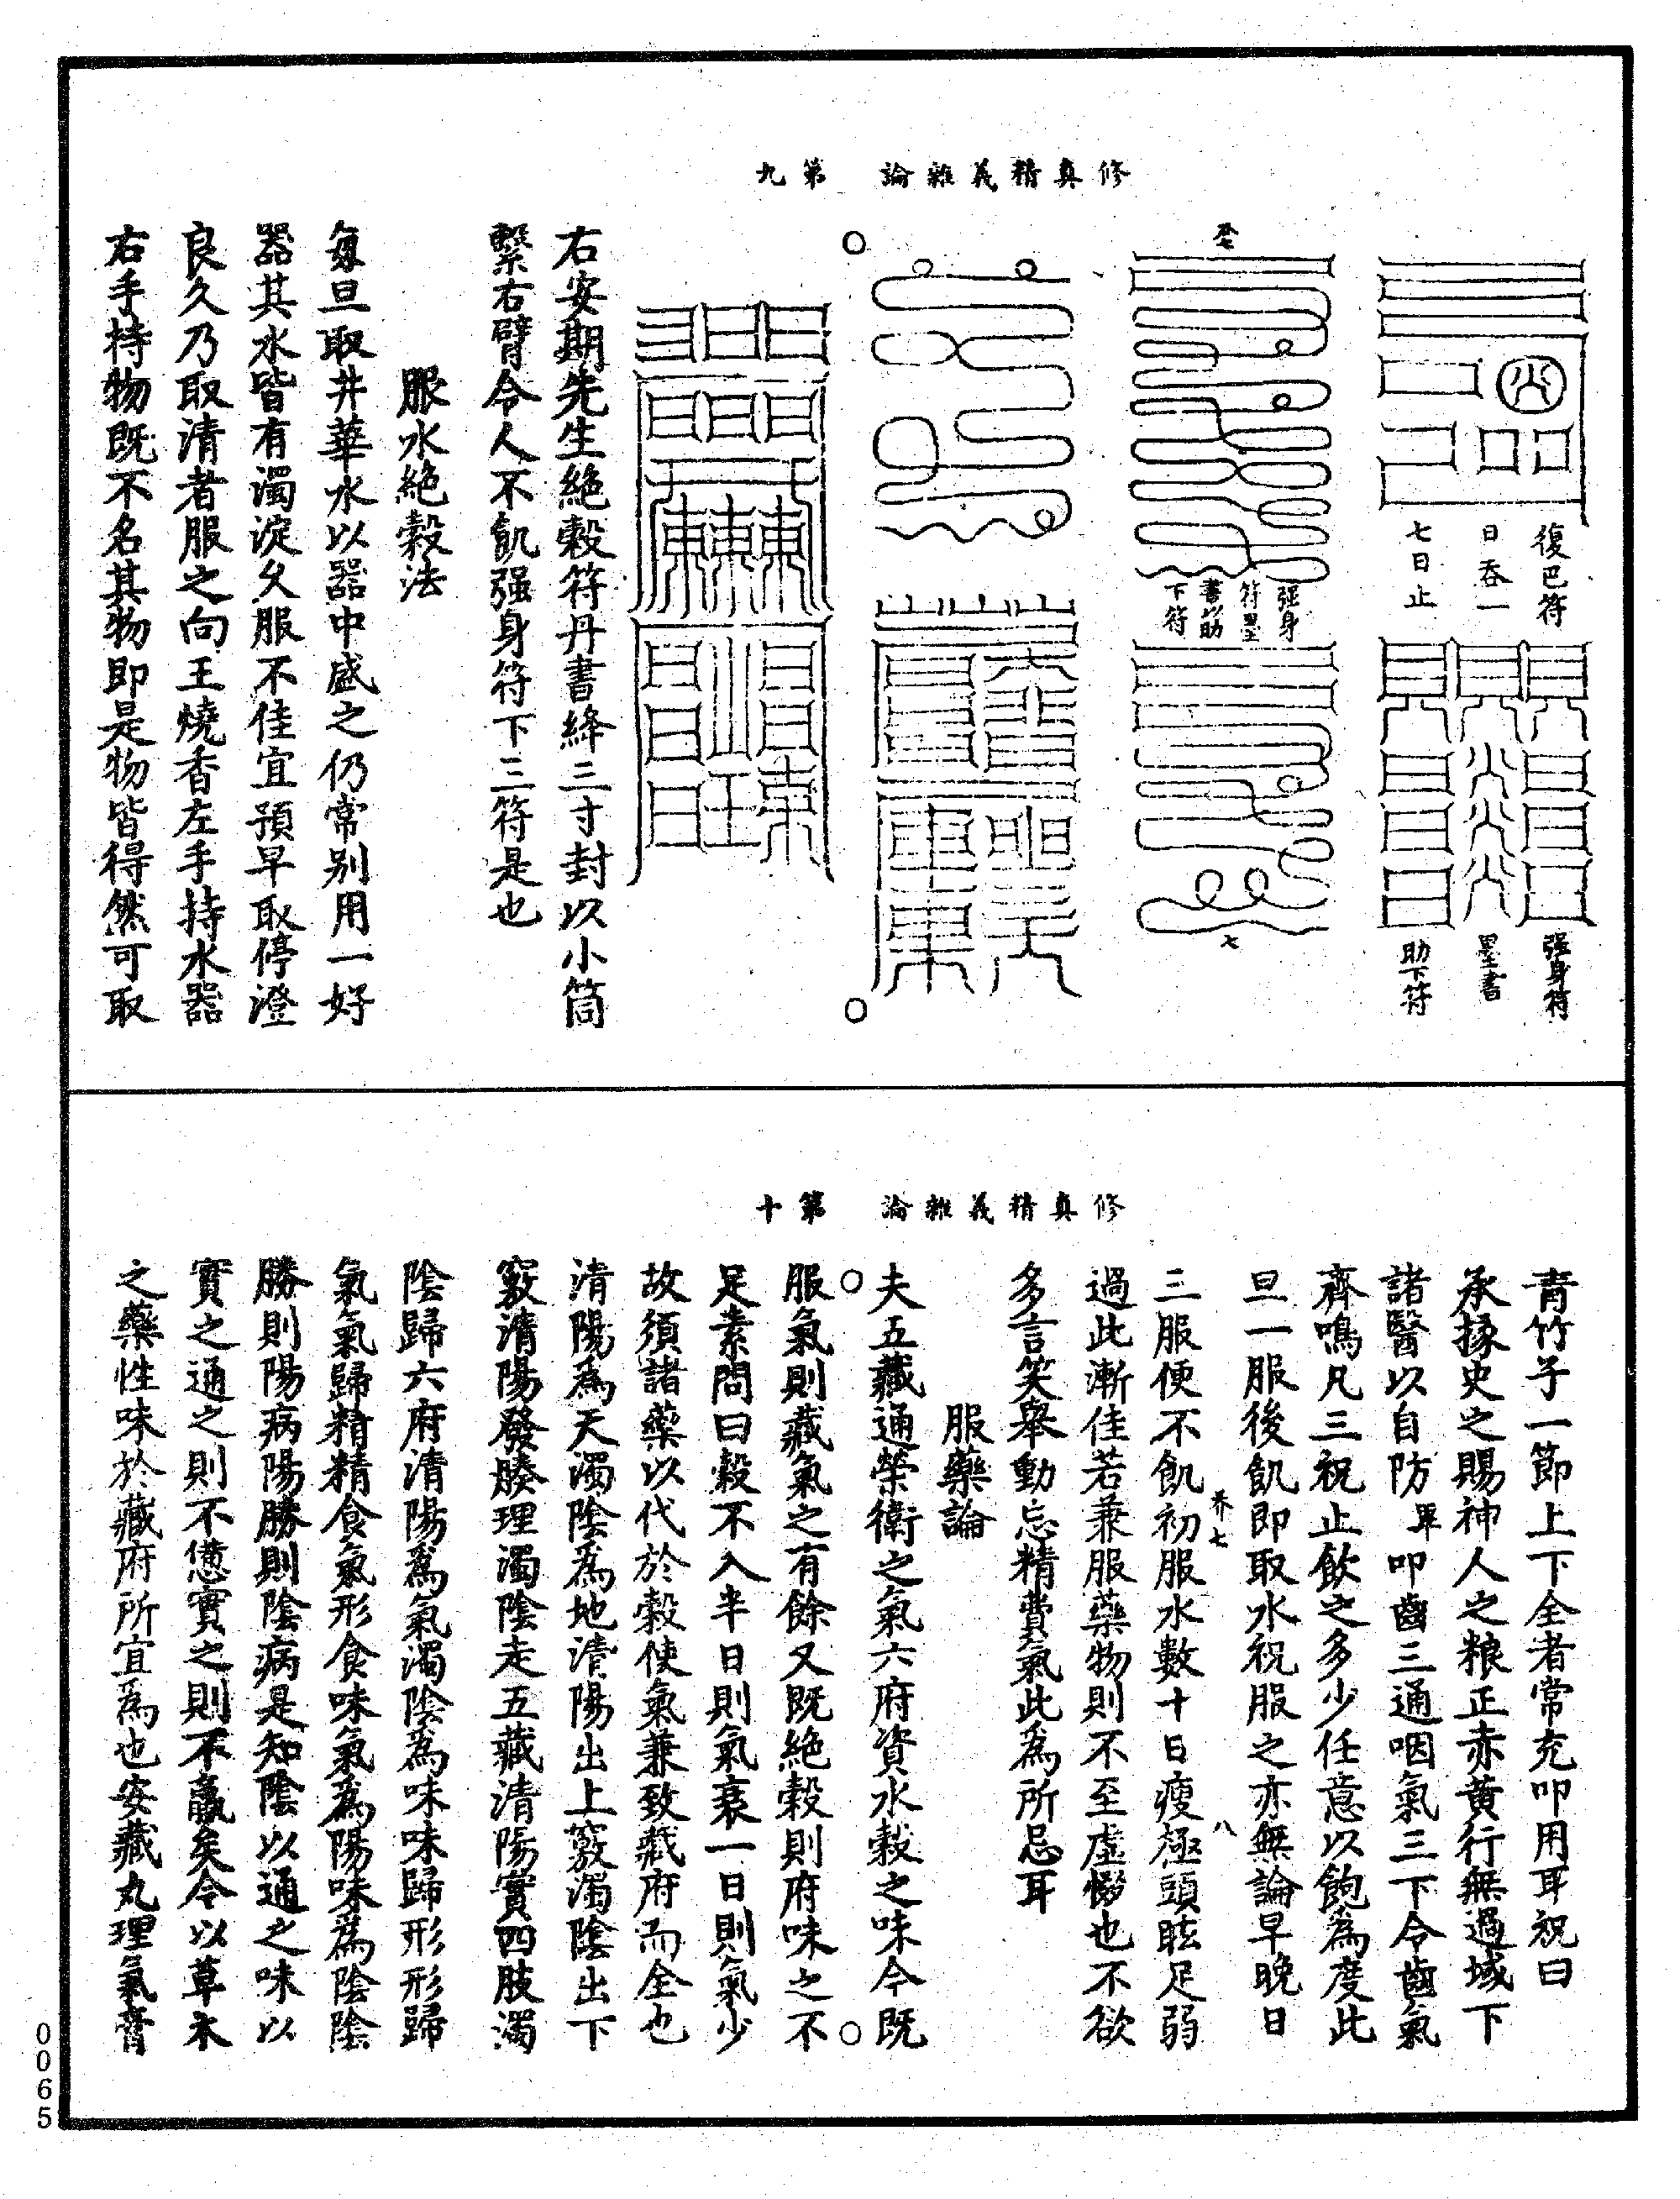 修真精義雜論　第九
復巴符
日吞一
七日止
强身符
墨書
助下符
强身
符墨
書以助
下符
七
右安期先生絶穀符丹書絳三寸封以小筒
繫右臂令人不飢强身符下三符是也
服水絶穀法
每旦取井華水以器中盛之仍常别用一好
器其水皆有濁淀久服不佳宜預早取停澄
良久乃取清者服之向王燒香左手持水器
右手持物既不名其物即是物皆得然可取
修真精義雜論　第十
青竹子一節上下全者常充叩用耳祝曰
承掾史之賜神人之粮正赤黄行無過城下
諸醫以自防畢叩齒三通咽氣三下令齒氣
齊鳴凡三祝止飲之多少任意以飽為度此
旦一服後飢即取水祝服之亦無論早晚日
芥七　八
三服便不飢初服水數十日瘦極頭眩足弱
過此漸佳若兼服藥物則不至虛惙也不欲
多言笑舉動忘精費氣此為所忌耳
服藥論
夫五藏通榮衛之氣六府資水穀之味今既
服氣則藏氣之有餘又既絶穀則府味之不
足素問曰穀不入半日則氣衰一日則氣少
故須諸藥以代於穀使氣兼致藏府而全也
清陽爲天濁陰爲地清陽出上竅濁陰出下
竅清陽發腠理濁陰走五藏清陽實四肢濁
陰歸六府清陽爲氣濁陰爲味味歸形形歸
氣氣歸精精食氣形食味氣爲陽味爲陰陰
勝則陽病陽勝則陰病是知陰以通之味以
實之通之則不憊實之則不羸矣今以草木
之藥性味於藏府所宜爲也安藏丸理氣膏
0065